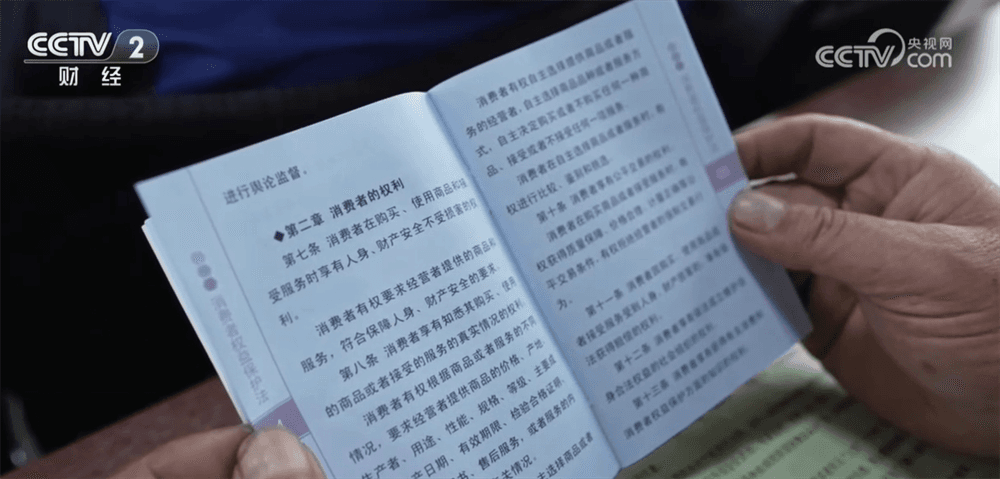 CCTV 2
财经
央视网
CCTV.com
进行舆论监督。
◆第二章 消费者的权利
第七条 消费者在购买、使用商品和接
受服务时享有人身、财产安全不受损害的权
利。
消费者有权要求经营者提供的商品和
服务，符合保障人身、财产安全的要求。
第八条 消费者享有知悉其购买、使用
的商品或者接受的服务的真实情况的权利。
消费者有权根据商品或者服务的不同
情况，要求经营者提供商品的价格、产地、
生产者、用途、性能、规格、等级、主要成
产日期、有效期限、检验合格证明、
书、售后服务，或者服务的内
关情况。
主选择商品或者
消费者权益保护法
消费者有权自主选择提供商品或者服
务的经营者，自主选择商品品种或者服务方
式，自主决定购买或者不购买任何一种商
品、接受或者不接受任何一项服务。
消费者在自主选择商品或者服务时，有
权进行比较、鉴别和挑选。
第十条 消费者享有公平交易的权利。
消费者在购买商品或者接受服务时，有
权获得质量保障、价格合理、计量正确等公
平交易条件，有权拒绝经营者的强制交易行
为。
第十一条 消费者因购买、使用商品或
者接受服务受到人身、财产损害的，享有依
法获得赔偿的权利。
第十二条 消费者享有依法成立维护自
身合法权益的社会组织的权利。
第十三条 消费者享有获得有关消费和
消费者权益保护方面的知识的权利。